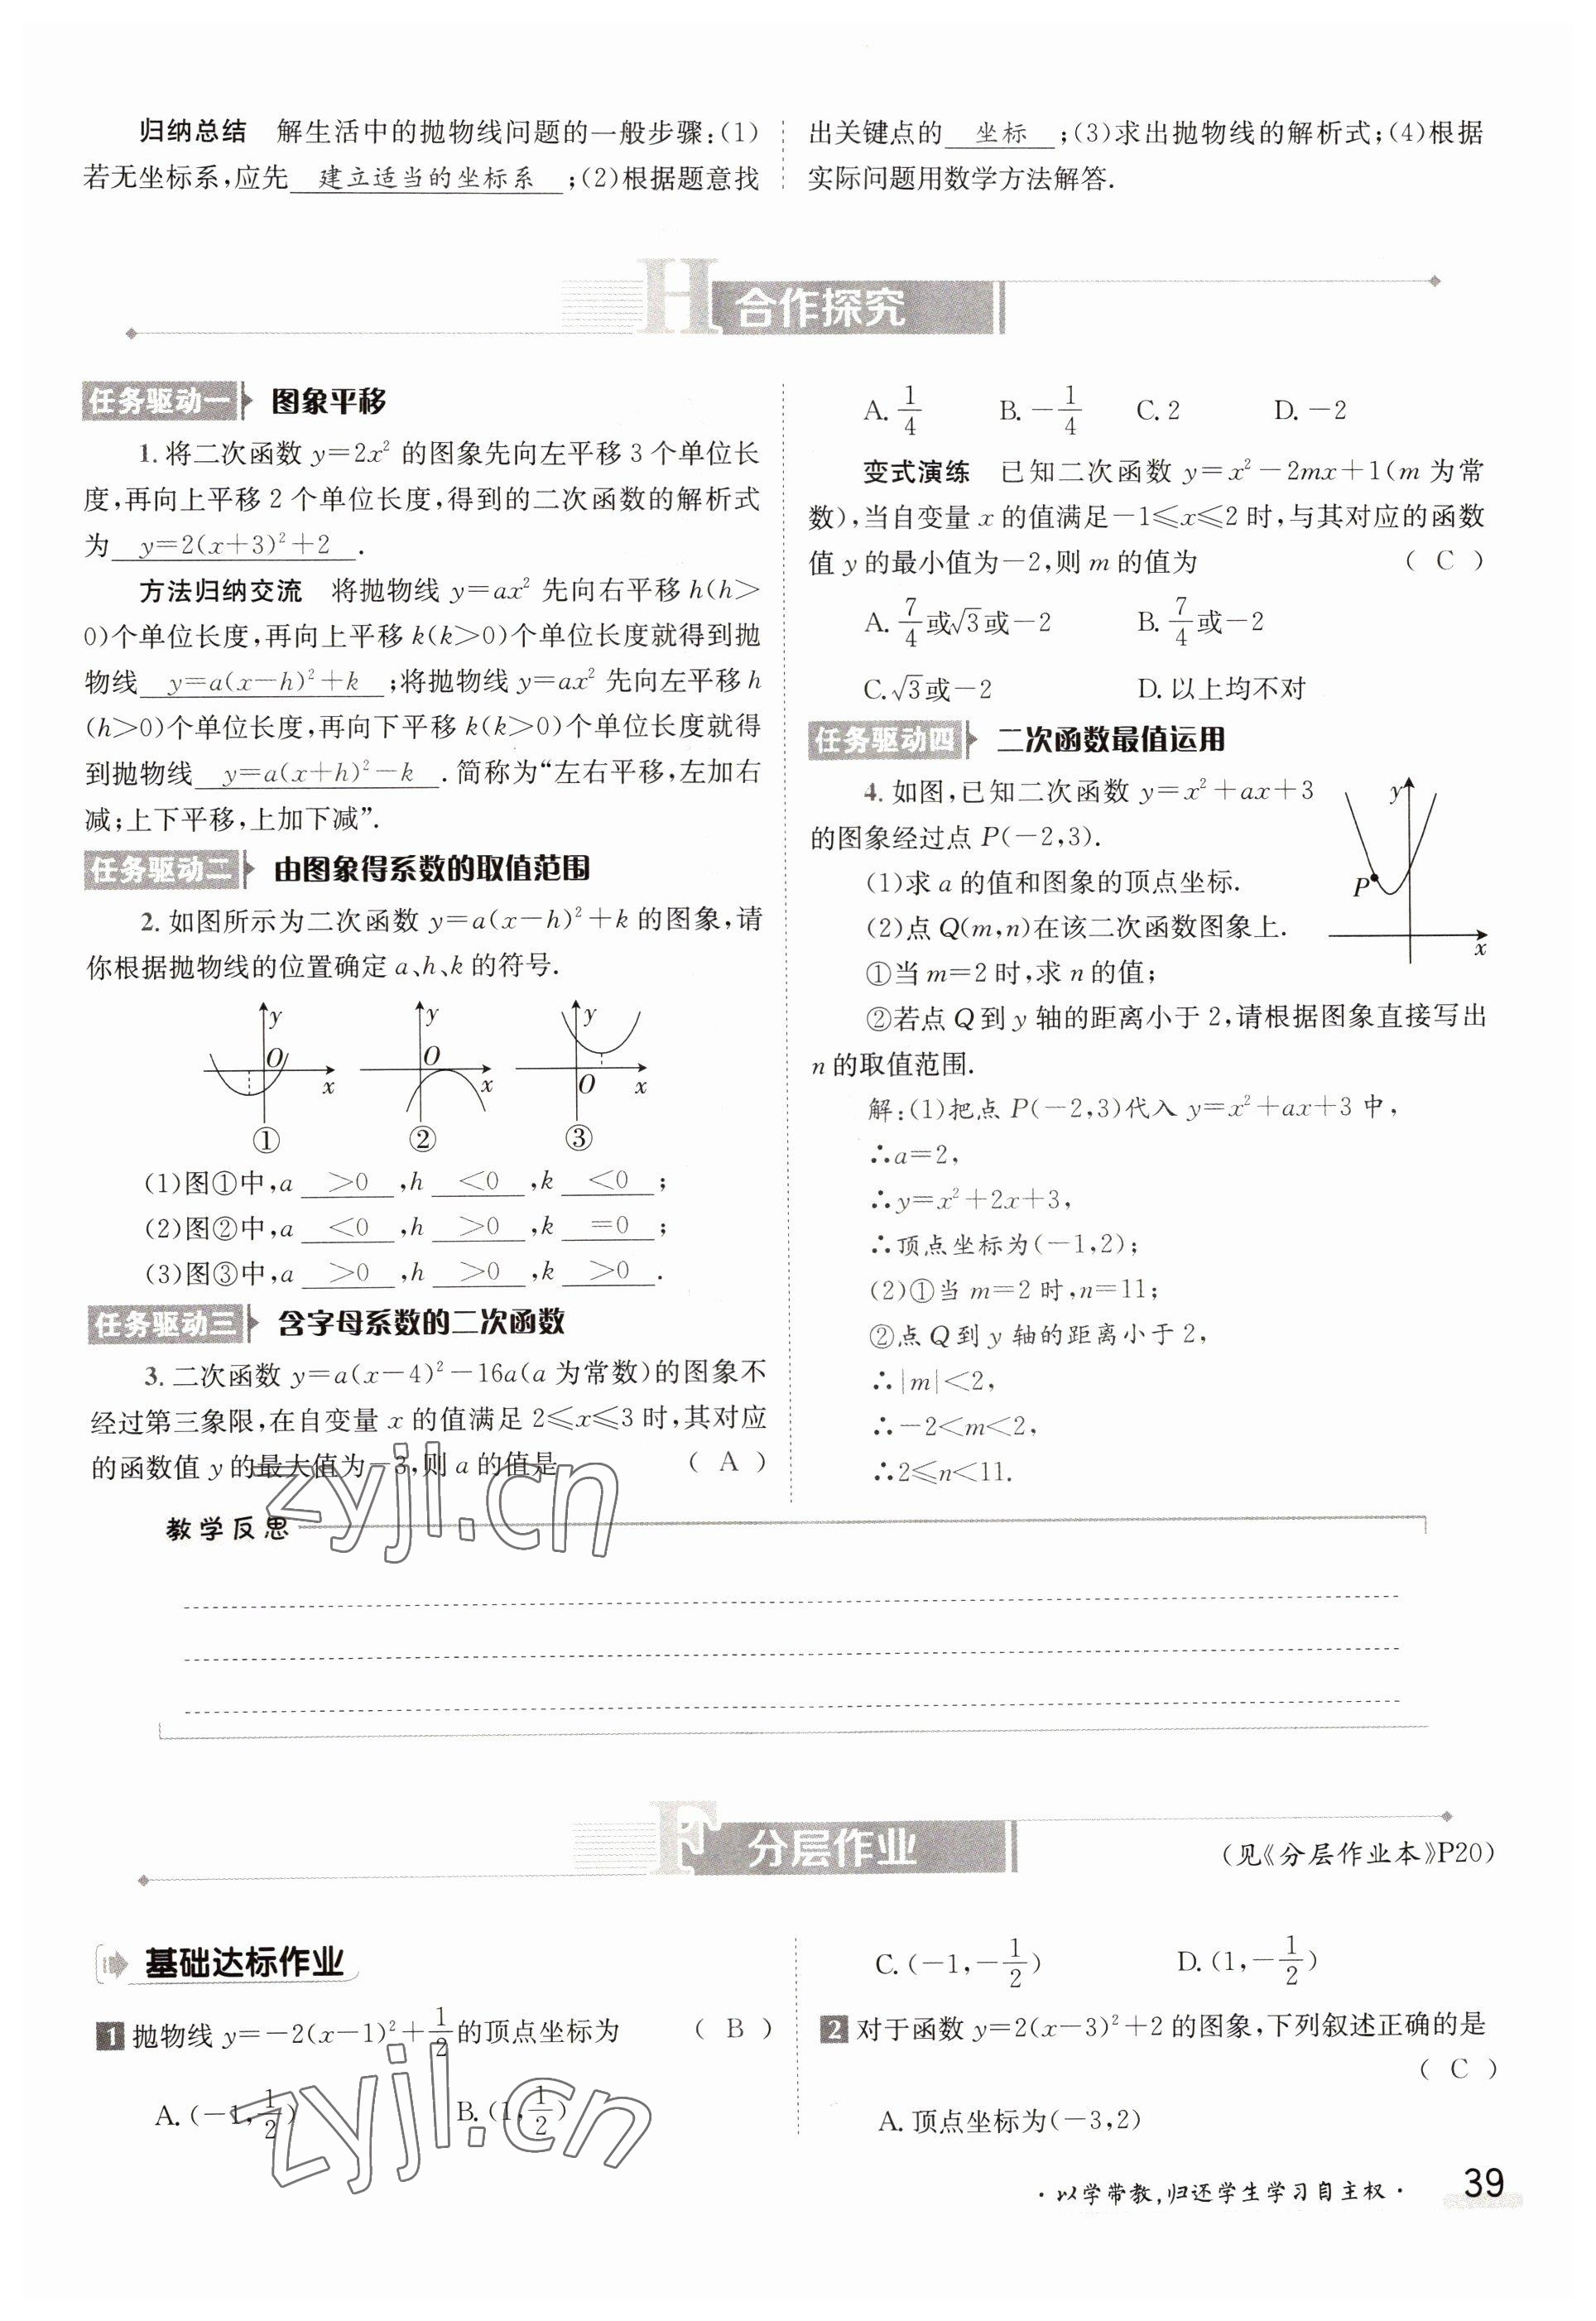 归纳总结 解生活中的抛物线问题的一般步骤:(1)
若无坐标系,应先 建立适当的坐标系 ;(2)根据题意找
出关键点的 坐标 ;(3)求出抛物线的解析式;(4)根据
实际问题用数学方法解答.
H 合作探究
任务驱动一 图象平移
1. 将二次函数 y=2x² 的图象先向左平移 3 个单位长
度,再向上平移 2 个单位长度,得到的二次函数的解析式
为 y=2(x+3)²+2 .
方法归纳交流 将抛物线 y=ax² 先向右平移 h(h>
0)个单位长度,再向上平移 k(k>0)个单位长度就得到抛
物线 y=a(x-h)²+k ;将抛物线 y=ax² 先向左平移 h
(h>0)个单位长度,再向下平移 k(k>0)个单位长度就得
到抛物线 y=a(x+h)²-k .简称为“左右平移,左加右
减;上下平移,上加下减”.
任务驱动二 由图象得系数的取值范围
2. 如图所示为二次函数 y=a(x-h)²+k 的图象,请
你根据抛物线的位置确定 a、h、k 的符号.
y O x y O x y O x
① ② ③
(1)图①中,a >0 ,h <0 ,k <0 ;
(2)图②中,a <0 ,h >0 ,k =0 ;
(3)图③中,a >0 ,h >0 ,k >0 .
任务驱动三 含字母系数的二次函数
3. 二次函数 y=a(x-4)²-16a(a 为常数)的图象不
经过第三象限,在自变量 x 的值满足 2≤x≤3 时,其对应
的函数值 y 的最大值为-3,则 a 的值是 ( A )
A. 1/4 B. -1/4 C. 2 D. -2
变式演练 已知二次函数 y=x²-2mx+1(m 为常
数),当自变量 x 的值满足-1≤x≤2 时,与其对应的函数
值 y 的最小值为-2,则 m 的值为 ( C )
A. 7/4或√3或-2 B. 7/4或-2
C. √3或-2 D. 以上均不对
任务驱动四 二次函数最值运用
4. 如图,已知二次函数 y=x²+ax+3
的图象经过点 P(-2,3).
(1)求 a 的值和图象的顶点坐标.
(2)点 Q(m,n)在该二次函数图象上.
①当 m=2 时,求 n 的值;
②若点 Q 到 y 轴的距离小于 2,请根据图象直接写出
n 的取值范围.
y P x
解:(1)把点 P(-2,3)代入 y=x²+ax+3 中,
∴a=2,
∴y=x²+2x+3,
∴顶点坐标为(-1,2);
(2)①当 m=2 时,n=11;
②点 Q 到 y 轴的距离小于 2,
∴|m|<2,
∴-2<m<2,
∴2≤n<11.
zyjl.cn
教学反思
F 分层作业
(见《分层作业本》P20)
基础达标作业
1 抛物线 y=-2(x-1)²+1/2的顶点坐标为 ( B )
A. (-1,1/2) B. (1,1/2)
C. (-1,-1/2) D. (1,-1/2)
2 对于函数 y=2(x-3)²+2 的图象,下列叙述正确的是
( C )
A. 顶点坐标为(-3,2)
zyjl.cn
·以学带教,归还学生学习自主权· 39